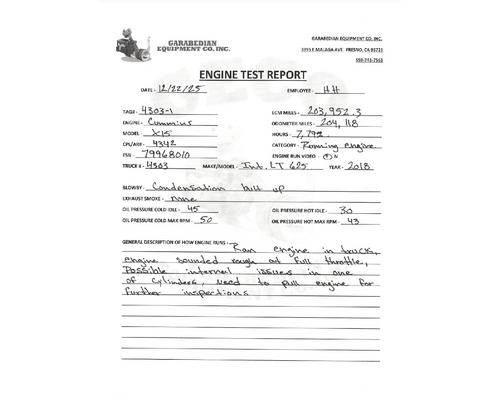 GARABEDIAN
EQUIPMENT CO. INC.
GARABEDIAN EQUIPMENT CO. INC.
3395 E MALAGA AVE. FRESNO, CA 93725
559-743-7563
ENGINE TEST REPORT
DATE - 12/22/25 EMPLOYEE - HH
TAG# - 4303-1 ECM MILES - 203,952.3
ENGINE - Cummins ODOMETER MILES - 204,118
MODEL - X15 HOURS - 7,792
CPL/AR# - 4342 CATEGORY - Running engine
ESN - 79968010 ENGINE RUN VIDEO - Y N
TRUCK # - 4303 MAKE/MODEL - Int. LT 625 YEAR - 2018
BLOWBY - Condensation built up
EXHAUST SMOKE - none
OIL PRESSURE COLD IDLE - 45 OIL PRESSURE HOT IDLE - 30
OIL PRESSURE COLD MAX RPM - 50 OIL PRESSURE HOT MAX RPM - 43
GENERAL DESCRIPTION OF HOW ENGINE RUNS - Ran engine in truck,
engine sounded rough at full throttle,
Possible internal issues in one
of cylinders, need to pull engine for
further inspections